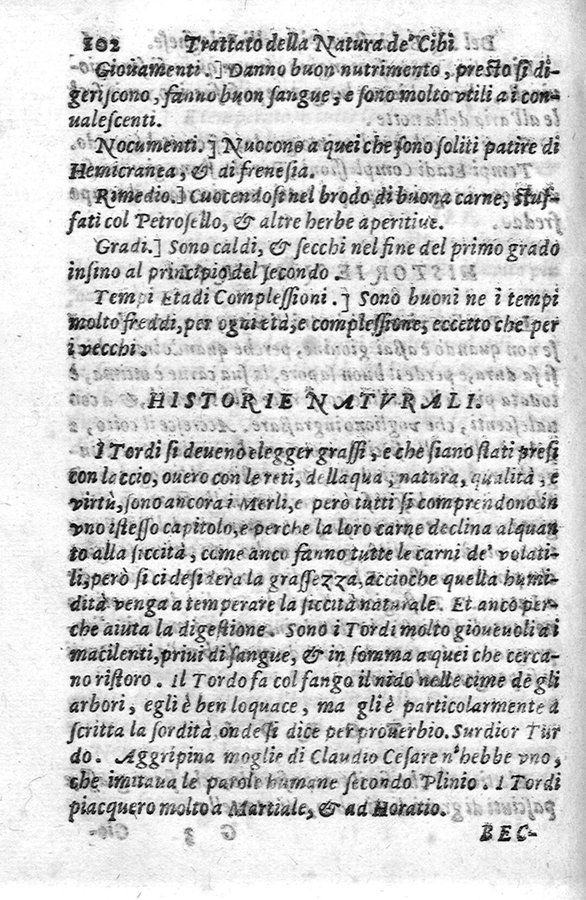 102 Trattato della Natura de' Cibi
Giouamenti.] Danno buon nutrimento, presto si di-
geriscono, fanno buon sangue, e sono molto vtili a i con-
ualescenti.
Nocumenti.] Nuocono a quei che sono soliti patire di
Hemicranea, & di frenesia.
Rimedio.] Cuocendosi nel brodo di buona carne, stuf-
fati col Petrosello, & altre herbe aperitiue.
Gradi.] Sono caldi, & secchi nel fine del primo grado
insino al principio del secondo.
Tempi Etadi Complessioni.] Sono buoni ne i tempi
molto freddi, per ogni età, e complessione, eccetto che per
i vecchi.
HISTORIE NATVRALI.
I Tordi si deueno elegger grassi, e che siano stati presi
con laccio, ouero con le reti, della qua, natura, qualità, e
virtù, sono ancora i Merli, e però tutti si comprendono in
vno istesso capitolo, e perche la loro carne declina alquan
to alla siccità, come anco fanno tutte le carni de' volati-
li, però si ci desidera la grassezza, accioche quella humi-
dità venga a temperare la siccità naturale. Et anco per-
che aiuta la digestione. Sono i Tordi molto gioueuoli ai
macilenti, priui di sangue, & in somma a quei che cerca-
no ristoro. Il Tordo fa col fango il nido nelle cime de gli
arbori, egli è ben loquace, ma gli è particolarmente a
scritta la sordità, onde si dice per prouerbio. Surdior Tur
do. Aggripina moglie di Claudio Cesare n'hebbe vno,
che imitaua le parole humane secondo Plinio. I Tordi
piacquero molto a Martiale, & ad Horatio.
G 3 BEC-